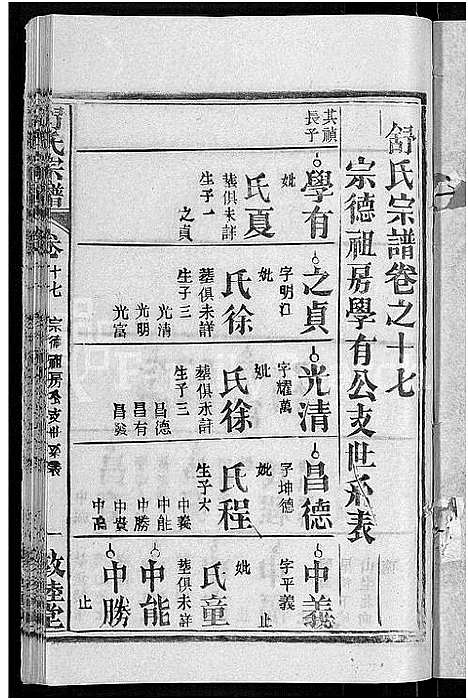 舒氏宗譜卷之十七
宗德祖房學有公支世系表
其禎長子
學有
妣
氏夏
塟俱未詳
生子一
之貞
之貞
字明江
妣
氏徐
塟俱未詳
生子三
光清
光明
光富
光清
字耀萬
妣
氏徐
塟俱未詳
生子三
昌德
昌有
昌發
昌德
字坤德
妣
氏程
生子六
中義
中能
中勝
中義
字平義
妣
氏童
塟俱未詳
止
中能
中勝
止
舒氏宗譜
卷十七
宗德祖房系支世系表
一
敦睦堂